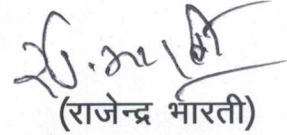 (राजेन्द्र भारती)